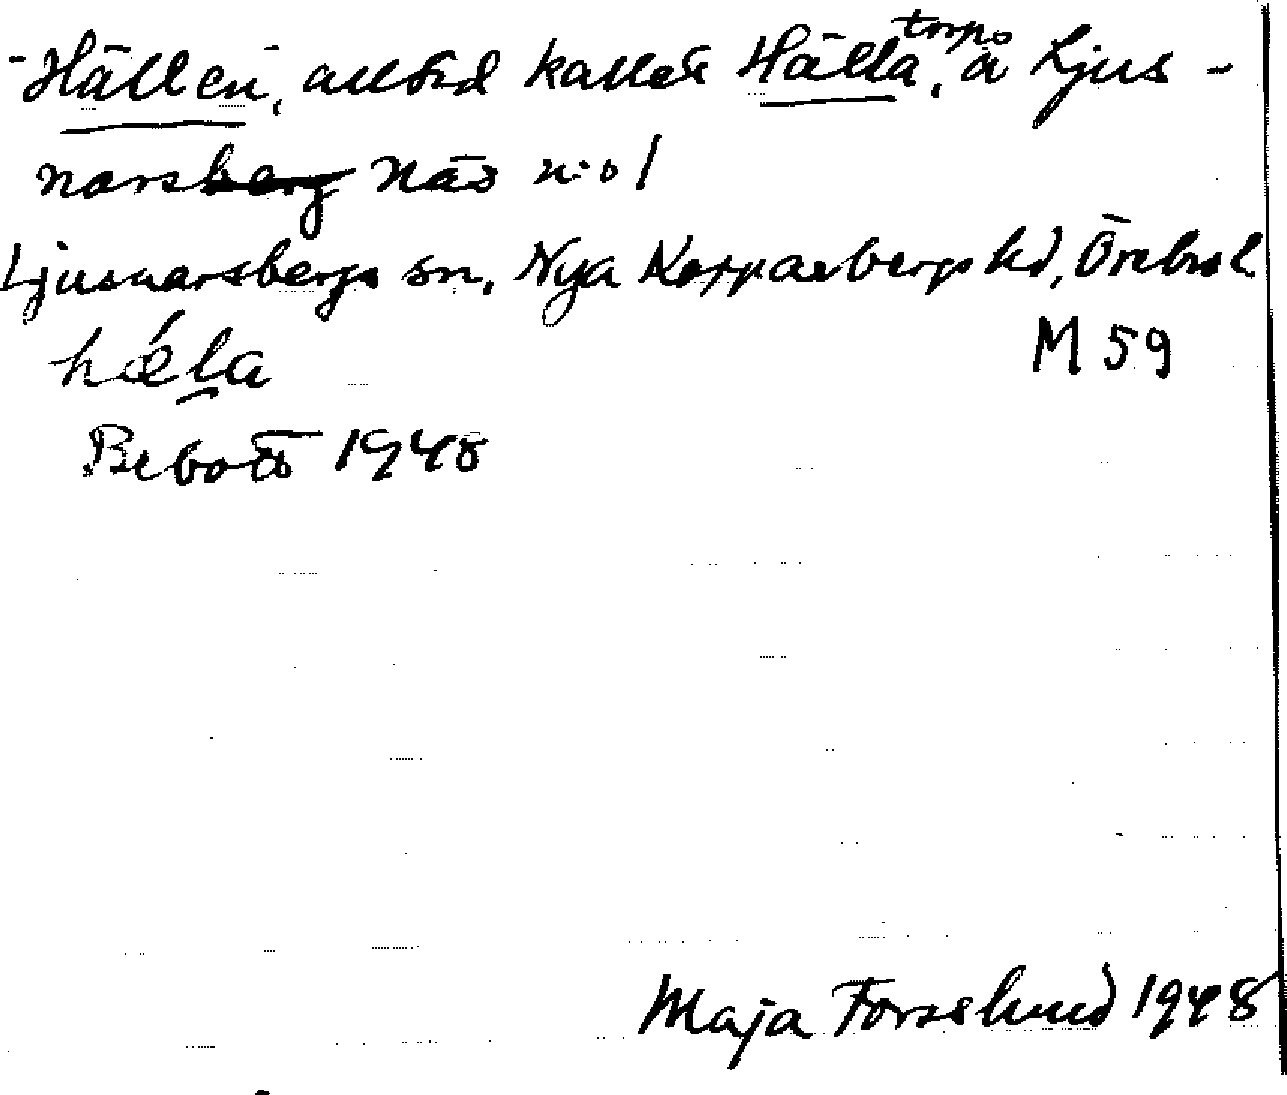 Hällen, alltid kallat Hälla, torp å Ljus-
nars näs n:o 1
Ljusnarsbergs sn, Nya Kopparbergs hd, Örebro l
hǽla
M 59
Bebott 1948
Maja Forsslund 1948